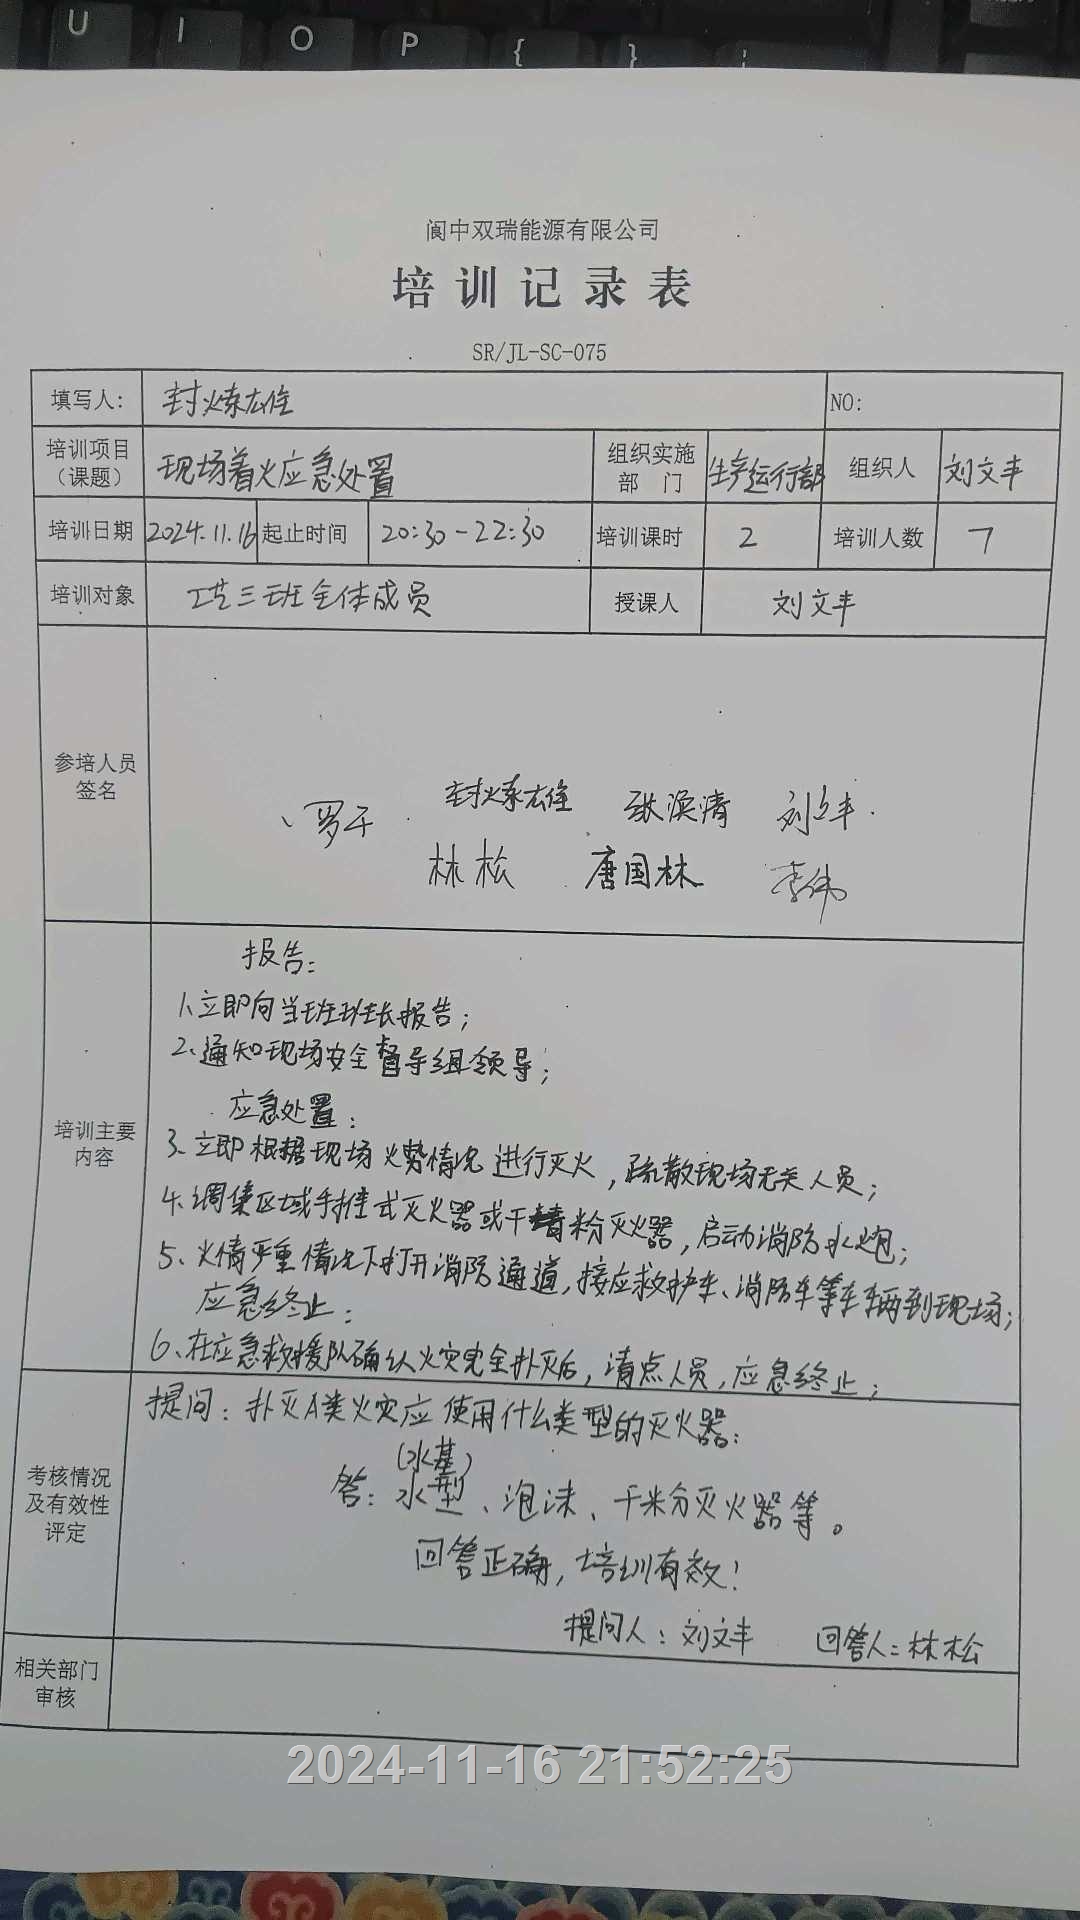 U I O P { }
阆中双瑞能源有限公司
培训记录表
SR/JL-SC-075
填写人: 封炼雄 NO:
培训项目（课题） 现场着火应急处置 组织实施部门 生产运行部 组织人 刘文丰
培训日期 2024.11.16 起止时间 20:30-22:30 培训课时 2 培训人数 7
培训对象 工艺三班全体成员 授课人 刘文丰
参培人员签名
罗千 封炼雄 张涣清 刘文丰
林松 唐国林 李伟
培训主要内容
报告：
1、立即向当班班长报告；
2、通知现场安全督导组领导；
应急处置：
3、立即根据现场火势情况进行灭火，疏散现场无关人员；
4、调集区域手推式灭火器或干粉灭火器，启动消防水炮；
5、火情严重情况下打开消防通道，接应救护车、消防车等车辆到现场；
应急终止：
6、在应急救援队确认火灾完全扑灭后，清点人员，应急终止；
考核情况及有效性评定
提问：扑灭A类火灾应使用什么类型的灭火器：
（水基）
答：水型、泡沫、干粉灭火器等。
回答正确，培训有效！
提问人：刘文丰 回答人：林松
相关部门审核
2024-11-16 21:52:25